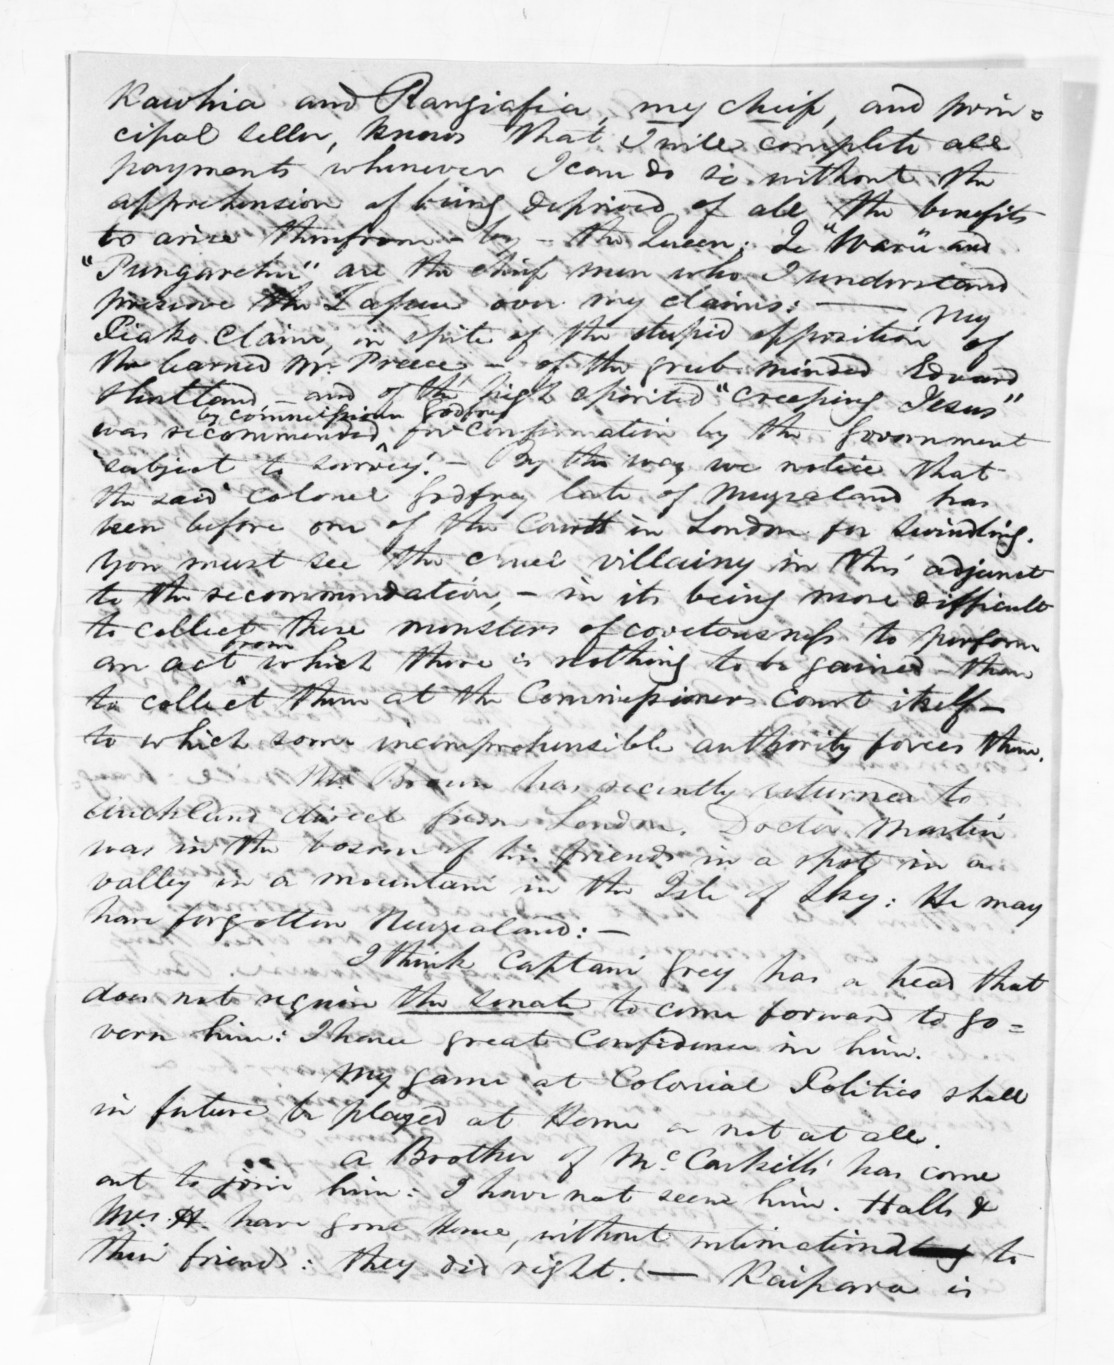 Kawhia and Rangiafia, my chief, and prin=
cipal seller, knows that I will complete all
payments whenever I can do so without the
apprehension of being deprived of all the benefits
to arise therefrom - by - the Queen; Te "Waru" and
"Pungarehu" are the chief men who I understand
preserve the Tapu over my claims: — My
Piako Claim, in spite of the stupid opposition of
the learned Mr. Preece, - of the grub minded Edward
Shortland - and of the high spirited "Creeping Jesus"
by commissioner Godfrey
was recommended for confirmation by the Government
"subject to survey". - By the way we notice that
the said Colonel Godfrey late of Newzealand has
been before one of the Courts in London for swindling.
You must see the cruel villainy in this adjunct
to the recommendation, - in its being more difficult
to collect these monsters of covetousness to perform
an act from which there is nothing to be gained - than
to collect them at the Commissioners Court itself -
to which some incomprehensible authority forces them.
Mr. Brown has recently returned to
Auckland direct from London. Doctor Martin
was in the bosom of his friends in a spot in a
valley in a mountain in the Isle of Sky: He may
have forgotten Newzealand: -
I think Captain Grey has a head that
does not require the Senate to come forward to go=
vern him: I have great Confidence in him.
My game at Colonial Politics shall
in future be played at Home or not at all.
A Brother of McCaskill's has come
out to join him: I have not seen him. Halls &
Mrs. H. have gone Home, without intimation to
their friends: they did right. — Kaipara is